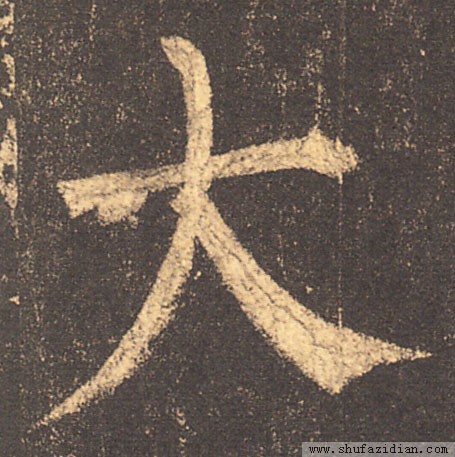 大
www.shufazidian.com